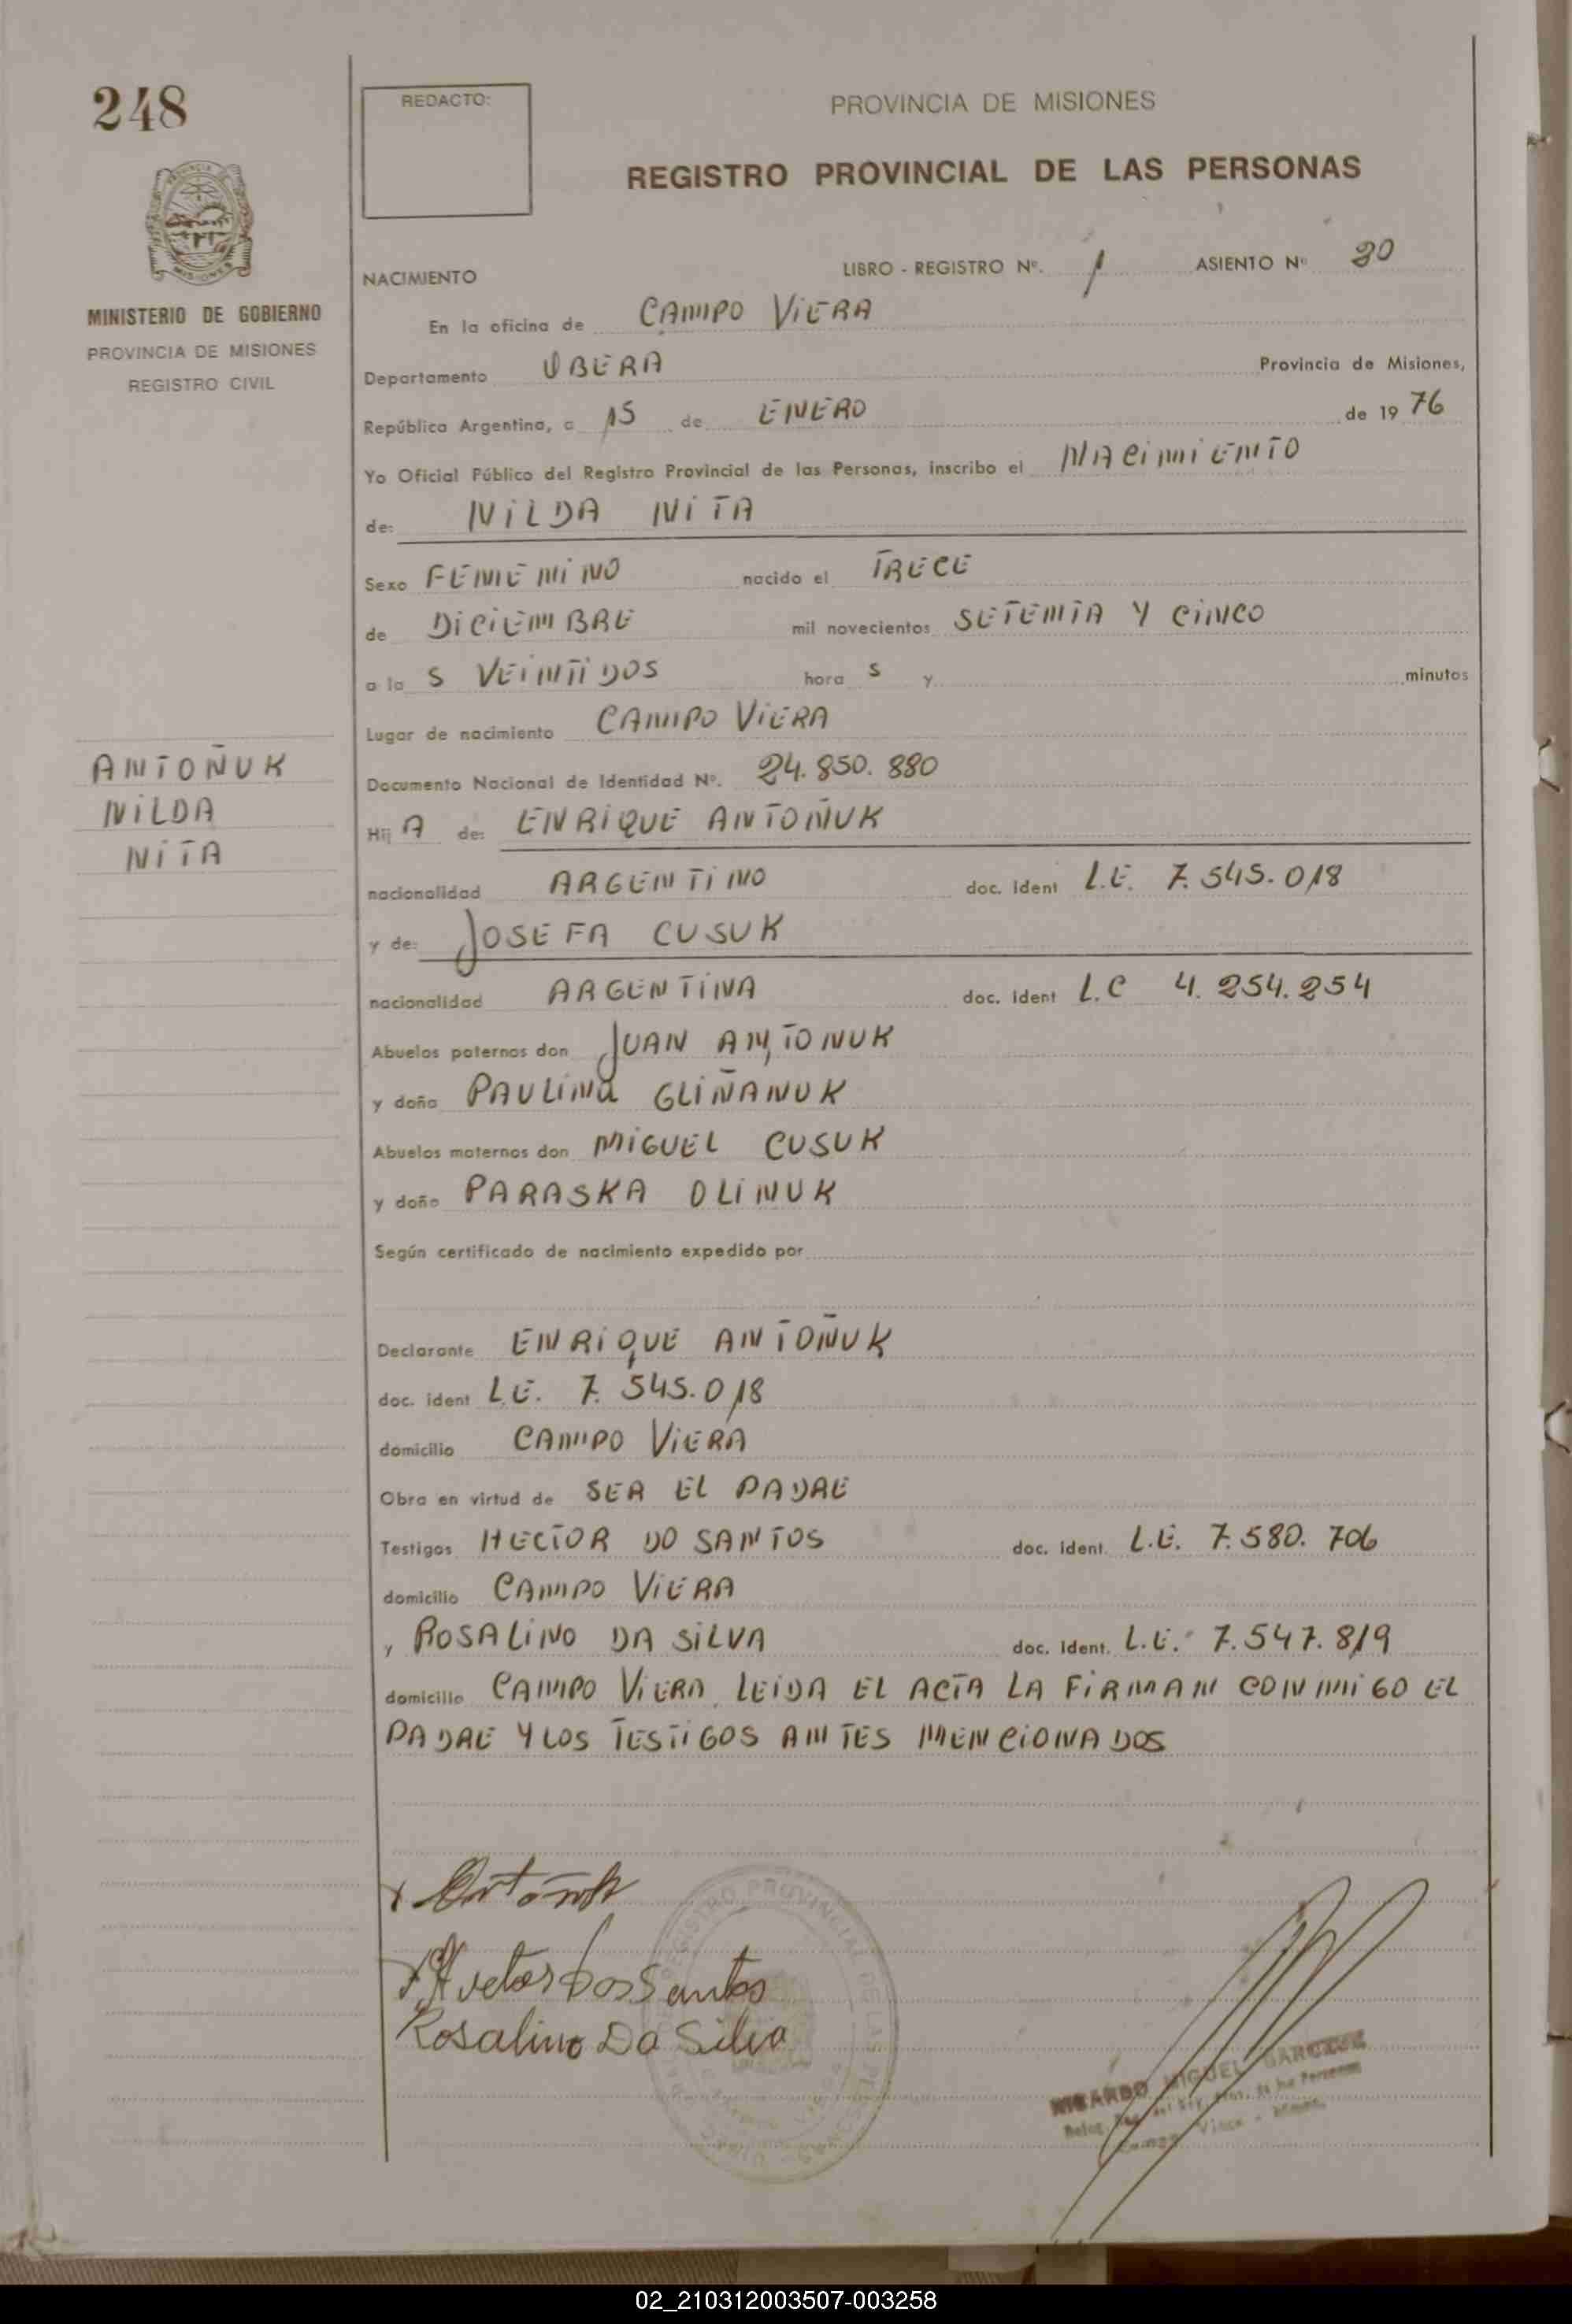 248
REDACTO:
PROVINCIA DE MISIONES
REGISTRO PROVINCIAL DE LAS PERSONAS
MINISTERIO DE GOBIERNO
PROVINCIA DE MISIONES
REGISTRO CIVIL
NACIMIENTO LIBRO - REGISTRO Nº. 1 ASIENTO Nº
En la oficina de CAMPO VIERA
Departamento OBERA Provincia de Misiones,
República Argentina, a 15 de ENERO de 1976
Yo Oficial Público del Registro Provincial de las Personas, inscribo el NACIMIENTO
de: NILDA NITA
Sexo FEMEMINO nacido el TRECE
de DICIEMBRE mil novecientos SETEMTA Y CINCO
a la S VEINTIDOS hora S y minutos
Lugar de nacimiento CAMPO VIERA
Documento Nacional de Identidad Nº. 24.850.880
ANTOÑUK
NILDA
NITA
Hij A de: ENRIQUE ANTOÑUK
nacionalidad ARGENTINO doc. ident L.E. 7.545.018
y de: JOSEFA CUSUK
nacionalidad ARGENTINA doc. ident L.C 4.254.254
Abuelos paternos don JUAN ANTONUK
y doña PAULINA GLIÑANUK
Abuelos maternos don MIGUEL CUSUK
y doña PARASKA OLINUK
Según certificado de nacimiento expedido por
Declarante ENRIQUE ANTOÑUK
doc. ident L.E. 7.545.018
domicilio CAMPO VIERA
Obra en virtud de SER EL PADRE
Testigos HECTOR DO SANTOS doc. ident. L.E. 7.580.706
domicilio CAMPO VIERA
y ROSALINO DA SILVA doc. Ident. L.E. 7.547.819
domicilio CAMPO VIERA. LEIDA EL ACTA LA FIRMAN CONMIGO EL
PADRE Y LOS TESTIGOS ANTES MENCIONADOS
Dos Santos
Rosalino Da Silva
REGISTRO PROVINCIAL DE LAS
RICARDO MIGUEL
02_210312003507-003258